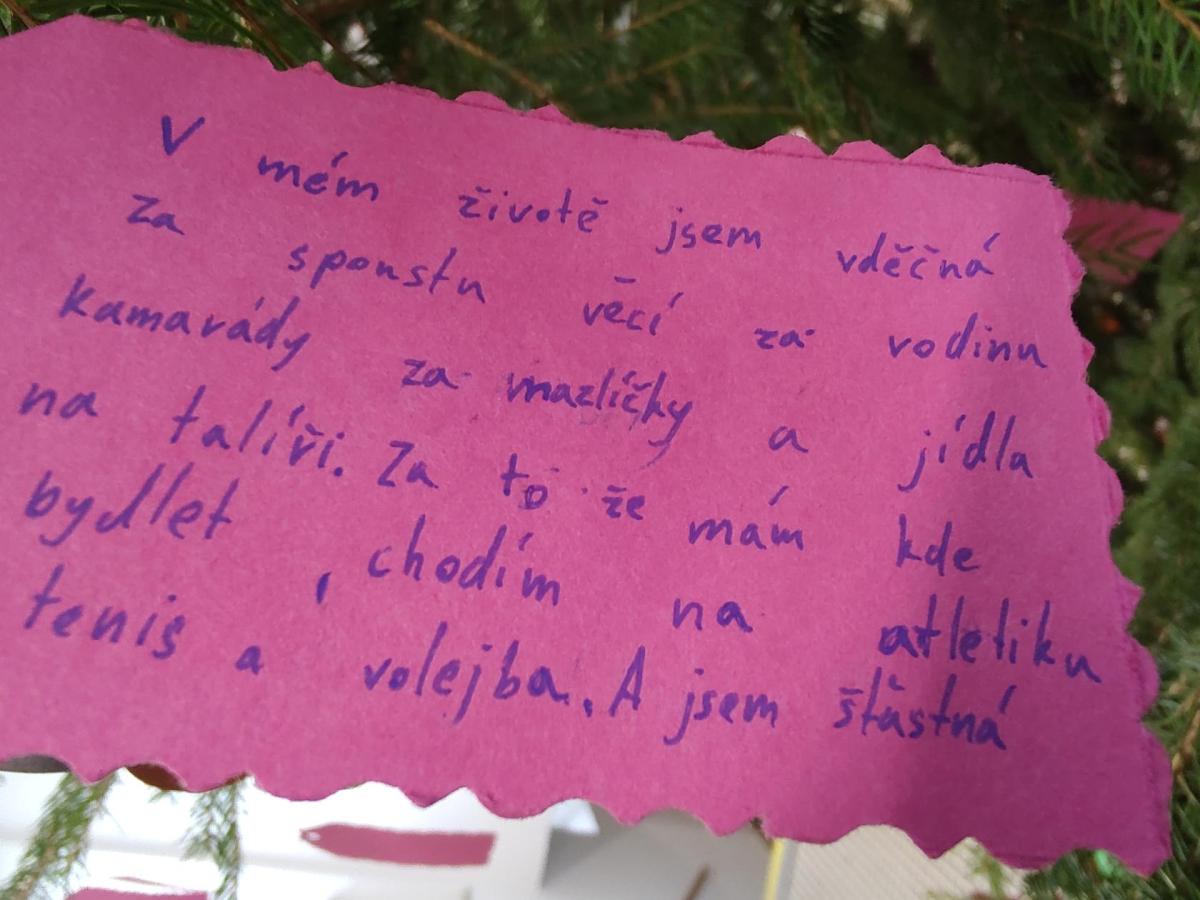 V mém životě jsem vděčná
za spoustu věcí za rodinu
kamarády za mazlíčky a jídla
na talíři. Za to že mám kde
bydlet, chodím na atletiku
tenis a volejba. A jsem šťastná